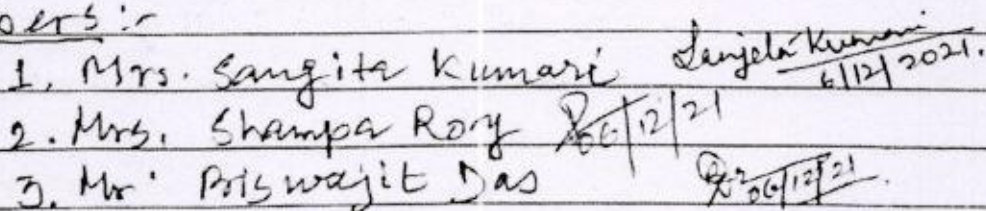 bers :-
1. Mrs. Sangita Kumari Sangita Kumari 6/12/2021.
2. Mrs. Shampa Roy 06/12/21
3. Mr. Biswajit Das 06/12/21.